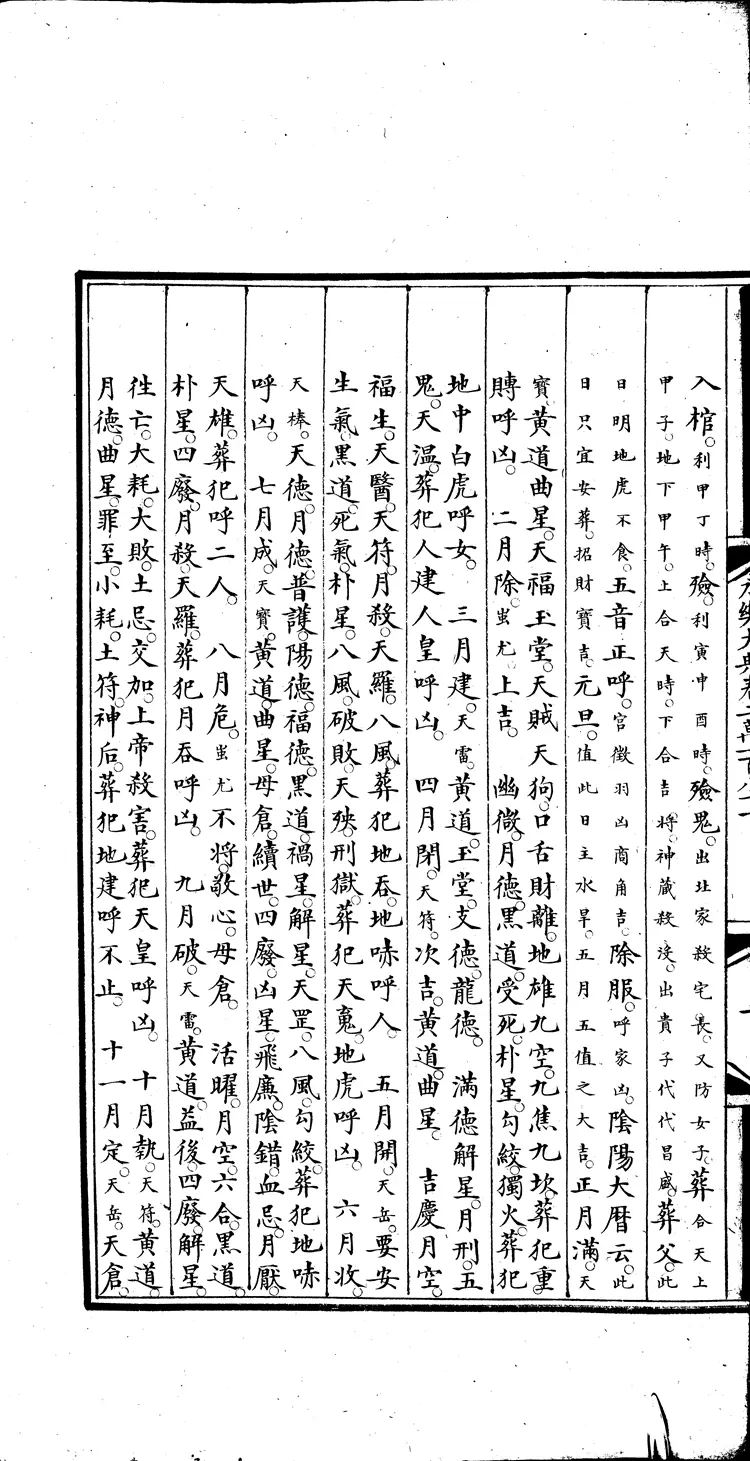 入棺。利甲丁時。殮。利寅申酉時。殮鬼。出北家殺宅長。又防女子。葬。合天上
甲子。地下甲午。上合天時。下合吉將。神藏殺没。出貴子代代昌盛。葬父。此
日明地虎不食。五音正呼。宮徵羽凶商角吉。除服。呼家凶。陰陽大曆云。此
日只宜安葬。招財寶吉。元旦。值此日主水旱。五月五值之大吉。正月滿。天
寶黄道曲星。天福玉堂。天賊天狗。口舌財離。地雄九空。九焦九坎。葬犯重
賻呼凶。 二月除。蚩尤上吉。 幽微。月德。黑道。受死。朴星。勾絞。獨火。葬犯
地中白虎呼女。 三月建。天雷。黄道。玉堂。支德。龍德。 滿德解星。月刑。五
鬼。天温。葬犯人建人皇呼凶。 四月閉。天符。次吉。黄道。曲星。 吉慶月空。
福生。天醫。天符。月殺。天羅。八風葬犯地吞。地啑呼人。 五月開。天岳。要安
生氣。黑道。死氣。朴星。八風。破敗。天殃。刑獄。葬犯天䰟。地虎呼凶。 六月收。
天棒。天德。月德。普護。陽德。福德。黑道。禍星。解星。天罡。八風。勾絞。葬犯地啑
呼凶。 七月成。天寶。黄道。曲星。母倉。續世。四廢。凶星。飛廉。陰錯。血忌。月厭。
天雄。葬犯呼二人。 八月危。蚩尤不將。敬心。母倉。 活曜。月空。六合。黑道。
朴星。四廢。月殺。天羅。葬犯月吞呼凶。 九月破。天雷。黄道。益後。四廢。解星。
徃亡。大耗。大敗。土忌。交加。上帝殺害。葬犯天皇呼凶。 十月執。天符。黄道。
月德。曲星。罪至。小耗。土符。神后。葬犯地建呼不止。 十一月定。天岳。天倉。